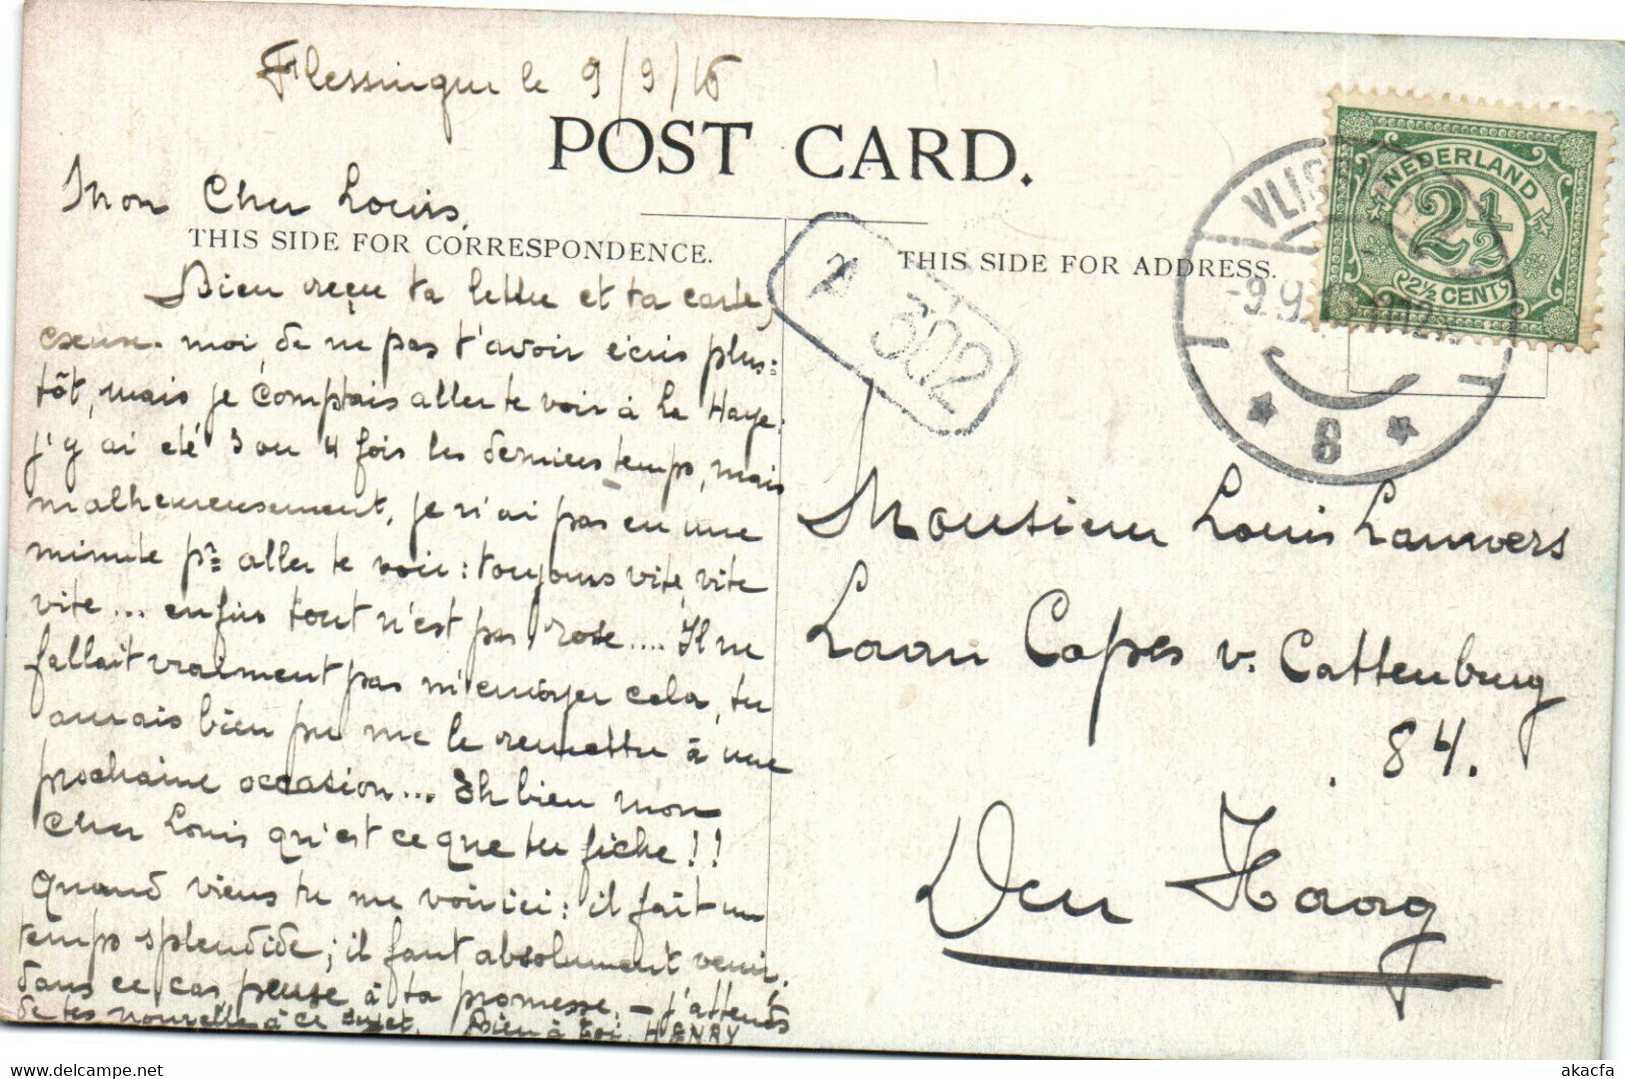 Flessingue le 9/9/16
POST CARD.
Mon Cher Louis,
THIS SIDE FOR CORRESPONDENCE.
THIS SIDE FOR ADDRESS.
Bien reçu ta lettre et ta carte,
excuse-moi, de ne pas t'avoir écris plus=
tôt, mais je comptais aller te voir à La Haye:
j'y ai eté 3 ou 4 fois les derniers temps, mais
malheureusement, je n'ai pas eu une
minute pr aller te voir: toujours vite, vite
vite... enfin tout n'est pas rose.... Il ne
fallait vraiment pas m'envoyer cela, tu
aurais bien pu me le remettre à une
prochaine occasion... Eh bien mon
cher Louis qu'est ce que tu fiche!!
Quand viens tu me voir ici: il fait un
temps splendide; il faut absolument venir,
dans ce cas pense à ta promesse. – J'attends
de tes nouvelle à ce sujet. Bien à toi. HENRY
302
NEDERLAND
2½
2½ CENT
VLIS
-9.9.
8
Monsieur Louis Lauwers
Laan Copes v. Cattenburg
84.
Den Haag
akacfa
www.delcampe.net
akacfa